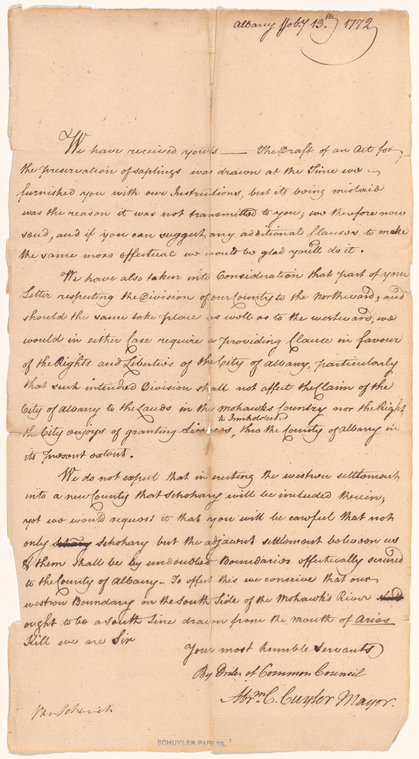 Albany ffeby 13th, 1772
We have received yours — The Draft of an Act for
the preservation of saplings was drawn at the Time we
furnished you with our Instructions, but its being mislaid
was the reason it was not transmitted to you; we therefore now
send, and if you can suggest any additional Clauses to make
the same more effectual we would be glad you'll do it.
We have also taken into Consideration that part of your
Letter respecting the Division of our County to the Northward, and
should the same take place as well as to the westward, we
would in either Case require a providing Clause in favour
of the Rights and Liberties of the City of Albany, particularly
that such intended Division shall not affect the Claim of the
City of Albany to the Lands in the Mohawks Country nor the Right
to Innholders
the City enjoys of granting Licences, thro the County of Albany in
its present extent.
We do not expect that in erecting the western settlement
into a new County that Schohary will be included therein;
yet we would request it that you will be careful that not
only Schohary but the adjacent settlement between us
& them shall be by undoubted Boundaries effectually secured
to the County of Albany - To effect this we conceive that our
western Boundary on the South Side of the Mohawk's River
ought to be a South Line drawn from the mouth of Arios
Kill we are Sir
Your most humble Servants
By Order of Common Council
Abrm. C. Cuyler Mayor.
SCHUYLER PAPERS.